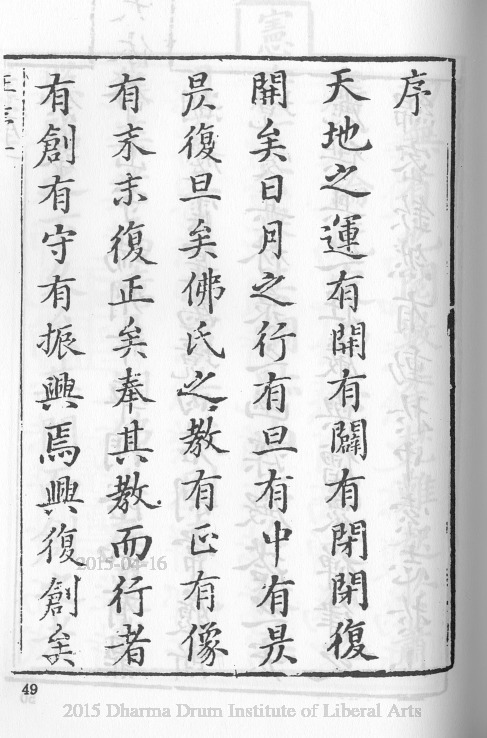 序
天地之運有開有闢有閉閉復
開矣日月之行有旦有中有昃
昃復旦矣佛氏之教有正有像
有末末復正矣奉其教而行者
有創有守有振興焉興復創矣
49
2015-04-16
2015 Dharma Drum Institute of Liberal Arts